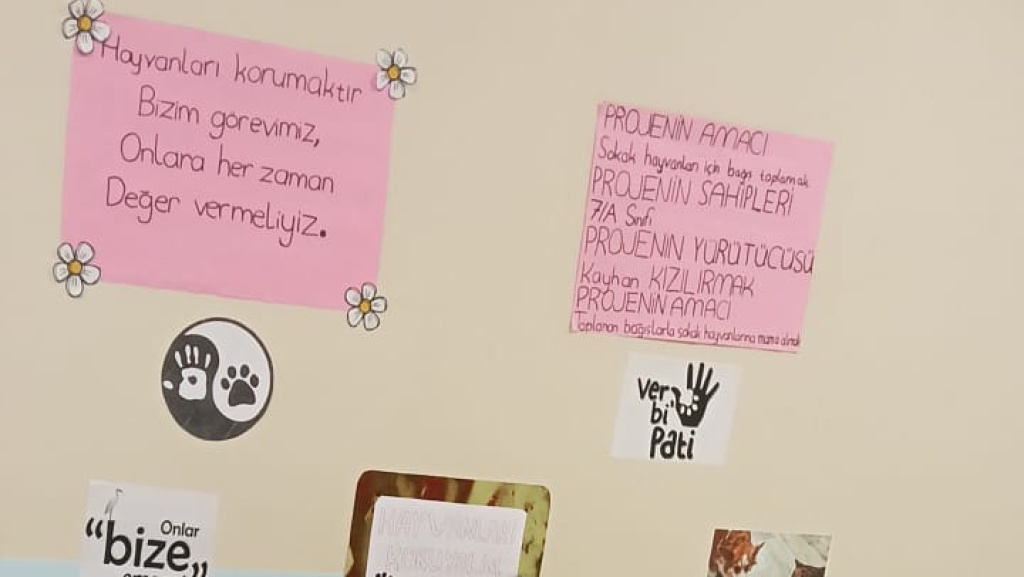 Hayvanları korumaktır
Bizim görevimiz,
Onlara her zaman
Değer vermeliyiz.
PROJENİN AMACI
Sokak hayvanları için bağış toplamak
PROJENİN SAHİPLERİ
7/A Sınıfı
PROJENİN YÜRÜTÜCÜSÜ
Kayhan KIZILIRMAK
PROJENİN AMACI
Toplanan bağışlarla sokak hayvanlarına mama almak
ver
bi
pati
Onlar
“bize”
HAYVANLARI
KORUYALIM